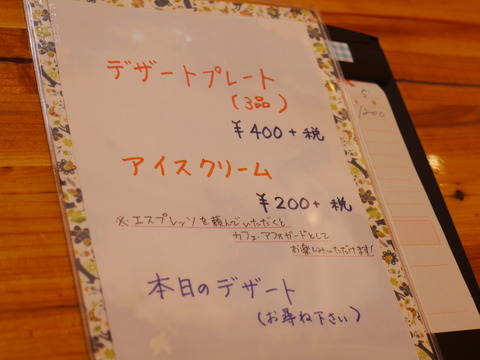 デザートプレート
(3品)
¥400+税
アイスクリーム
¥200+税
※エスプレッソを頼んでいただくと
カフェ・アフォガードとして
お楽しみいただけます!
本日のデザート
(お尋ね下さい)
5
1200